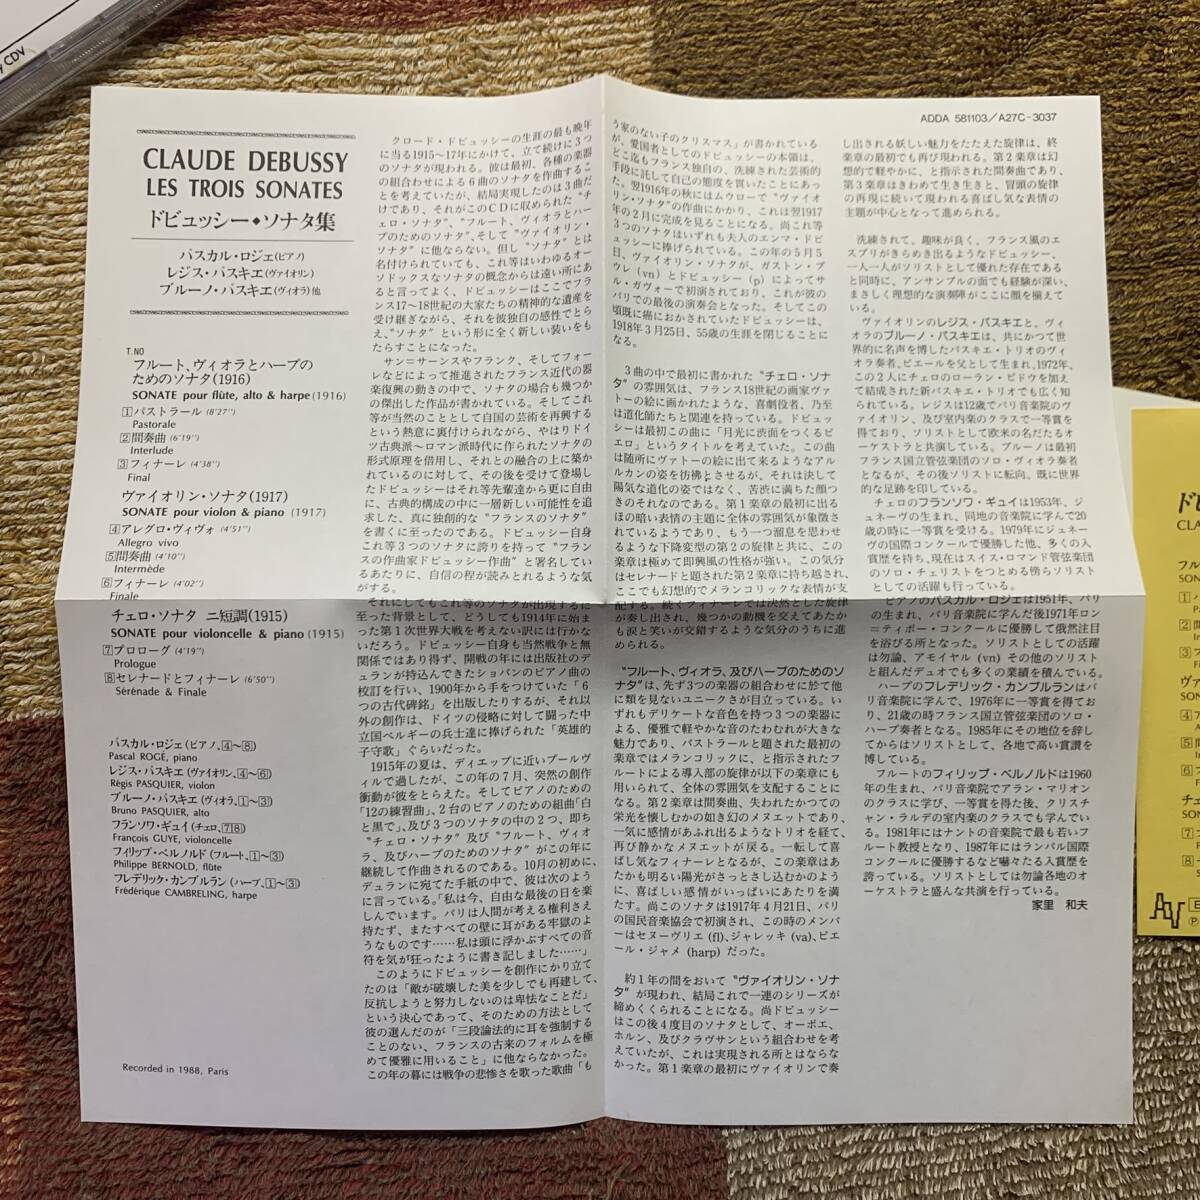 CDV
ADDA 581103/A27C-3037
CLAUDE DEBUSSY
LES TROIS SONATES
ドビュッシー◆ソナタ集
パスカル・ロジェ(ピアノ)
レジス・パスキエ(ヴァイオリン)
ブルーノ・パスキエ(ヴィオラ)他
T.NO
フルート、ヴィオラとハープの
ためのソナタ(1916)
SONATE pour flûte, alto & harpe(1916)
1 パストラール (8'27'')
Pastorale
2 間奏曲 (6'19'')
Interlude
3 フィナーレ (4'38'')
Final
ヴァイオリン・ソナタ(1917)
SONATE pour violon & piano (1917)
4 アレグロ・ヴィヴォ (4'51'')
Allegro vivo
5 間奏曲 (4'10'')
Intermède
6 フィナーレ (4'02'')
Finale
チェロ・ソナタ ニ短調(1915)
SONATE pour violoncelle & piano (1915)
7 プロローグ (4'19'')
Prologue
8 セレナードとフィナーレ (6'50'')
Sérénade & Finale
パスカル・ロジェ(ピアノ、4〜8)
Pascal ROGÉ, piano
レジス・パスキエ(ヴァイオリン、4〜6)
Régis PASQUIER, violon
ブルーノ・パスキエ(ヴィオラ、1〜3)
Bruno PASQUIER, alto
フランソワ・ギュイ(チェロ、7 8)
François GUYE, violoncelle
フィリップ・ベルノルド(フルート、1〜3)
Philippe BERNOLD, flûte
フレデリック・カンブルラン(ハープ、1〜3)
Frédérique CAMBRELING, harpe
Recorded in 1988, Paris
クロード・ドビュッシーの生涯の最も晩年
に当る1915〜17年にかけて、立て続けに3つ
のソナタが現われる。彼は最初、各種の楽器
の組合わせによる6曲のソナタを作曲するこ
とを考えていたが、結局実現したのは3曲だ
けであり、それがこのCDに収められた〝チ
ェロ・ソナタ〟、〝フルート、ヴィオラとハー
プのためのソナタ〟、そして〝ヴァイオリン・
ソナタ〟に他ならない。但し〝ソナタ〟とは
名付けられていても、これ等はいわゆるオー
ソドックスなソナタの概念からは遠い所にあ
ると言ってよく、ドビュッシーはここでフラ
ンス17〜18世紀の大家たちの精神的な遺産を
受け継ぎながら、それを彼独自の感性でとら
え、〝ソナタ〟という形に全く新しい装いをも
たらすことになった。
サン=サーンスやフランク、そしてフォー
レなどによって推進されたフランス近代の器
楽復興の動きの中で、ソナタの場合も幾つか
の傑出した作品が書かれている。そしてこれ
等が当然のこととして自国の芸術を再興する
という熱意に裏付けられながら、やはりドイ
ツ古典派〜ロマン派時代に作られたソナタの
形式原理を借用し、それとの融合の上に築か
れているのに対して、その後を受けて登場し
たドビュッシーはそれ等先輩達から更に自由
に、古典的構成の中に一層新しい可能性を追
求した、真に独創的な〝フランスのソナタ〟
を書くに至ったのである。ドビュッシー自身
これ等3つのソナタに誇りを持って〝フラン
スの作曲家ドビュッシー作曲〟と署名してい
るあたりに、自信の程が読みとれるような気
がする。
それにしてもこれ等のソナタが出現するに
至った背景として、どうしても1914年に始ま
った第1次世界大戦を考えない訳には行かな
いだろう。ドビュッシー自身も当然戦争と無
関係ではあり得ず、開戦の年には出版社のデ
ュランが持込んできたショパンのピアノ曲の
校訂を行い、1900年から手をつけていた「6
つの古代碑銘」を出版したりするが、それ以
外の創作は、ドイツの侵略に対して闘った中
立国ベルギーの兵士達に捧げられた「英雄的
子守歌」ぐらいだった。
1915年の夏は、ディエップに近いプールヴ
ィルで過したが、この年の7月、突然の創作
衝動が彼をとらえた。そしてピアノのための
「12の練習曲」、2台のピアノのための組曲「白
と黒で」、及び3つのソナタの中の2つ、即ち
〝チェロ・ソナタ〟及び〝フルート、ヴィオ
ラ、及びハープのためのソナタ〟がこの年に
継続して作曲されるのである。10月の初めに、
デュランに宛てた手紙の中で、彼は次のよう
に言っている。「私は今、自由な最後の日を楽
しんでいます。パリは人間が考える権利さえ
持たず、またすべての壁に耳がある牢獄のよ
うなものです……私は頭に浮かぶすべての音
符を気が狂ったように書き記しました……」
このようにドビュッシーを創作にかり立て
たのは「敵が破壊した美を少しでも再建して、
反抗しようと努力しないのは卑怯なことだ」
という決心であって、そのための方法として
彼の選んだのが「三段論法的に耳を強制する
ことのない、フランスの古来のフォルムを極
めて優雅に用いること」に他ならなかった。
この年の暮には戦争の悲惨さを歌った歌曲「も
う家のない子のクリスマス」が書かれている
が、愛国者としてのドビュッシーの本領は、
どこ迄もフランス独自の、洗練された芸術的
手段に託して自己の態度を貫いたことにあっ
た。翌1916年の秋にはムウローで〝ヴァイオ
リン・ソナタ〟の作曲にかかり、これは翌1917
年の2月に完成を見ることになる。尚これ等
3つのソナタはいずれも夫人のエンマ・ドビ
ュッシーに捧げられている。この年の5月5
日、ヴァイオリン・ソナタが、ガストン・プ
ウレ(vn)とドビュッシー(p)によってサ
ル・ガヴォーで初演されており、これが彼の
パリでの最後の演奏会となった。そしてこの
頃既に癌におかされていたドビュッシーは、
1918年3月25日、55歳の生涯を閉じることに
なる。
3曲の中で最初に書かれた〝チェロ・ソナ
タ〟の雰囲気は、フランス18世紀の画家ヴァ
トーの絵に画かれたような、喜劇役者、乃至
は道化師たちと関連を持っている。ドビュッ
シーは最初この曲に「月光に渋面をつくるピ
エロ」というタイトルを考えていた。この曲
は随所にヴァトーの絵に出て来るようなアル
ルカンの姿を彷彿とさせるが、それは決して
陽気な道化の姿ではなく、苦渋に満ちた顔つ
きのそれなのである。第1楽章の最初に出る
ほの暗い表情の主題に全体の雰囲気が象徴さ
れているようであり、もう一つ溜息を思わせ
るような下降変型の第2の旋律と共に、この
楽章は極めて即興風の性格が強い。この気分
はセレナードと題された第2楽章に持ち越され、
ここでも幻想的でメランコリックな表情が支
配する。続くフィナーレでは決然とした旋律
が奏し出され、幾つかの動機を交えてあたか
も涙と笑いが交錯するような気分のうちに進
められる。
〝フルート、ヴィオラ、及びハープのためのソ
ナタ〟は、先ず3つの楽器の組合わせに於て他
に類を見ないユニークさが目立っている。い
ずれもデリケートな音色を持つ3つの楽器に
よる、優雅で軽やかな音のたわむれが大きな
魅力であり、パストラールと題された最初の
楽章ではメランコリックに、と指示されたフ
ルートによる導入部の旋律が以下の楽章にも
用いられて、全体の雰囲気を支配することに
なる。第2楽章は間奏曲、失われたかつての
栄光を懐しむかの如き幻のメヌエットであり、
一気に感情があふれ出るようなトリオを経て、
再び静かなメヌエットが戻る。一転して喜
ばし気なフィナーレとなるが、この楽章はあ
たかも明るい陽光がさっとさし込むかのよう
に、喜ばしい感情がいっぱいにあたりを満
たす。尚このソナタは1917年4月21日、パリ
の国民音楽協会で初演され、この時のメンバ
ーはセヌーヴリエ(fl)、ジャレッキ(va)、ピエ
ール・ジャメ(harp)だった。
約1年の間をおいて〝ヴァイオリン・ソナ
タ〟が現われ、結局これで一連のシリーズが
締めくくられることになる。尚ドビュッシー
はこの後4度目のソナタとして、オーボエ、
ホルン、及びクラヴサンという組合わせを考
えていたが、これは実現される所とはならな
かった。第1楽章の最初にヴァイオリンで奏
し出される妖しい魅力をたたえた旋律は、終
楽章の最初でも再び現われる。第2楽章は幻
想的で軽やかに、と指示された間奏曲であり、
第3楽章はきわめて生き生きと、冒頭の旋律
の再現に続いて現われる喜ばし気な表情の
主題が中心となって進められる。
洗練されて、趣味が良く、フランス風のエ
スプリがきらめき出るようなドビュッシー、
一人一人がソリストとして優れた存在である
と同時に、アンサンブルの面でも経験が深い、
まさしく理想的な演奏陣がここに顔を揃えて
いる。
ヴァイオリンのレジス・パスキエと、ヴィ
オラのブルーノ・パスキエは、共にかつて世
界的に名声を博したパスキエ・トリオのヴィ
オラ奏者、ピエールを父として生まれ、1972年、
この2人にチェロのローラン・ピドウを加え
て結成された新パスキエ・トリオでも広く知
られている。レジスは12歳でパリ音楽院のヴ
ァイオリン、及び室内楽のクラスで一等賞を
得ており、ソリストとして欧米の名だたるオ
ーケストラと共演している。ブルーノは最初
フランス国立管弦楽団のソロ・ヴィオラ奏者
となるが、その後ソリストに転向、既に世界
的な足跡を印している。
チェロのフランソワ・ギュイは1953年、ジ
ュネーヴの生まれ、同地の音楽院に学んで20
歳の時に一等賞を受ける。1979年にジュネー
ヴの国際コンクールで優勝した他、多くの入
賞歴を持ち、現在はスイス・ロマンド管弦楽団
のソロ・チェリストをつとめる傍らソリスト
としての活躍も行っている。
ピアノのパスカル・ロジェは1951年、パリ
の生まれ、パリ音楽院に学んだ後1971年ロン
=ティボー・コンクールに優勝して俄然注目
を浴びる所となった。ソリストとしての活躍
は勿論、アモイヤル(vn)その他のソリスト
と組んだデュオでも多くの業績を積んでいる。
ハープのフレデリック・カンブルランはパ
リ音楽院に学んで、1976年に一等賞を得てお
り、21歳の時フランス国立管弦楽団のソロ・
ハープ奏者となる。1985年にその地位を辞し
てからはソリストとして、各地で高い賞讃を
博している。
フルートのフィリップ・ベルノルドは1960
年の生まれ、パリ音楽院でアラン・マリオン
のクラスに学び、一等賞を得た後、クリスチ
ャン・ラルデの室内楽のクラスでも学んでい
る。1981年にはナントの音楽院で最も若いフ
ルート教授となり、1987年にはランパル国際
コンクールに優勝するなど嚇々たる入賞歴を
誇っている。ソリストとしては勿論各地のオ
ーケストラと盛んな共演を行っている。
家里 和夫